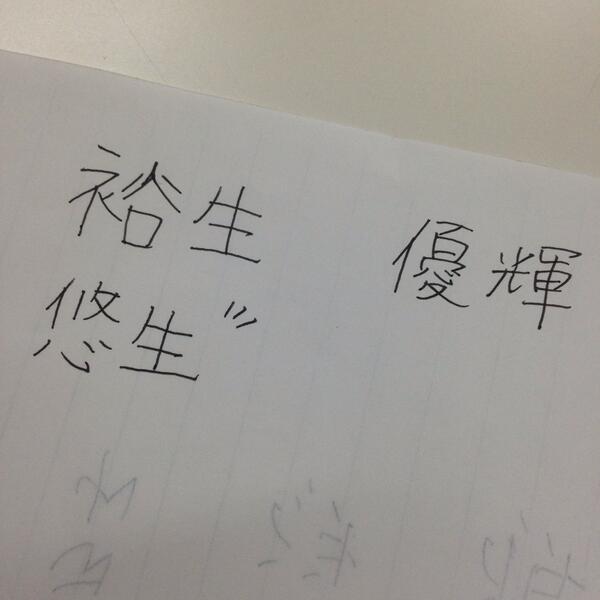 裕生 優輝
悠生